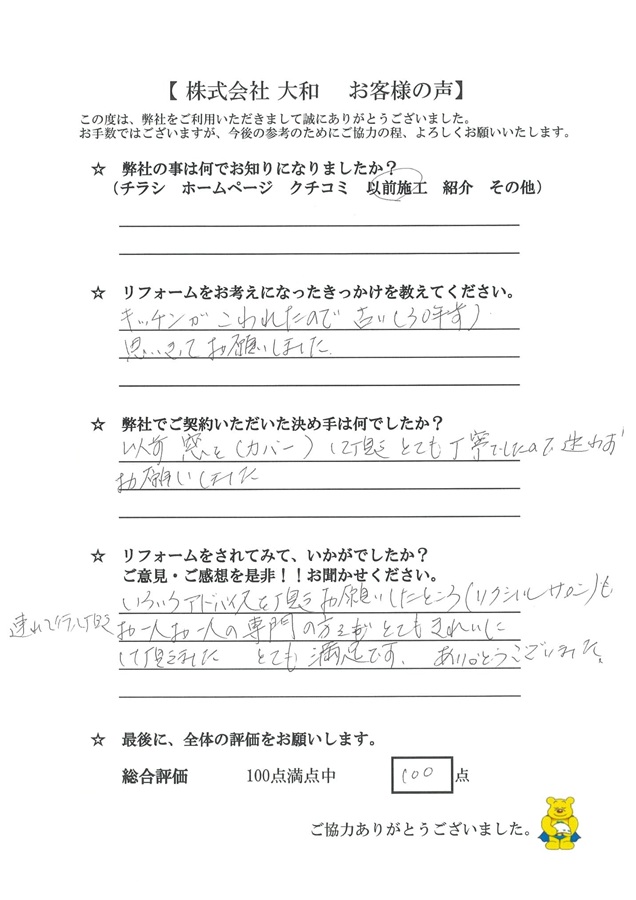 【 株式会社 大和　お客様の声】
この度は、弊社をご利用いただきまして誠にありがとうございました。
お手数ではございますが、今後の参考のためにご協力の程、よろしくお願いいたします。
☆　弊社の事は何でお知りになりましたか？
（チラシ　ホームページ　クチコミ　以前施工　紹介　その他）
☆　リフォームをお考えになったきっかけを教えてください。
キッチンが こわれたので 古い(30年前)
思いきって お願いしました
☆　弊社でご契約いただいた決め手は何でしたか？
以前 窓を(カバー) して頂き とても丁寧でしたので 迷わず
お願いしました
☆　リフォームをされてみて、いかがでしたか？
ご意見・ご感想を是非！！お聞かせください。
いろいろアドバイスを頂き お願いしたところ(リクシルサロン)も
連れて行って頂き お一人お一人の専門の方々が とてもきれいに
して頂きました　とても満足です。 ありがとうございました。
☆　最後に、全体の評価をお願いします。
総合評価　100点満点中　100 点
ご協力ありがとうございました。